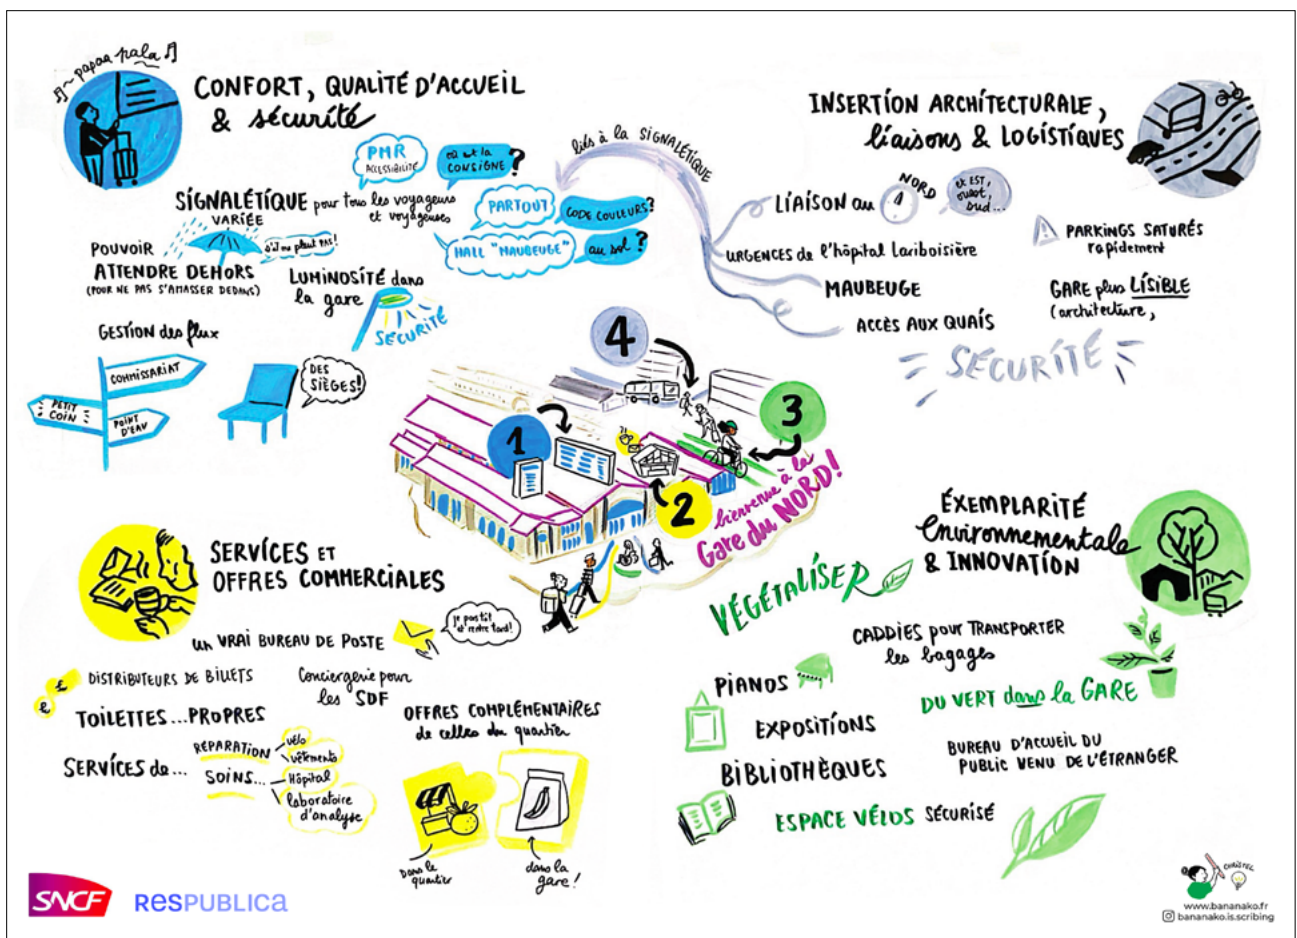 papaa pala
CONFORT, QUALITÉ D'ACCUEIL
& sécurité
PMR
ACCESSIBILITÉ
où est la
CONSIGNE ?
SIGNALÉTIQUE pour tous les voyageurs
et voyageuses
VARIÉE
PARTOUT
CODE COULEURS ?
HALL "MAUBEUGE"
au sol ?
POUVOIR
ATTENDRE DEHORS
(POUR NE PAS S'AMASSER DEDANS)
s'il ne pleut PAS !
LUMINOSITÉ dans
la gare
SÉCURITÉ
GESTION des flux
COMMISSARIAT
PETIT
COIN
POINT
D'EAU
DES
SIÈGES !
liés à la SIGNALÉTIQUE
INSERTION ARCHITECTURALE,
liaisons & LOGISTIQUES
LIAISON au NORD
et EST,
ouest,
sud...
URGENCES de l'hôpital Lariboisière
MAUBEUGE
ACCÈS AUX QUAIS
PARKINGS SATURÉS
rapidement
GARE plus LISIBLE
(architecture,
SÉCURITÉ
4
3
1
2
bienvenue à la
Gare du NORD !
SERVICES ET
OFFRES COMMERCIALES
un VRAI BUREAU DE POSTE
je pars tôt
et rentre tard !
DISTRIBUTEURS DE BILLETS
Conciergerie pour
les SDF
TOILETTES ... PROPRES
SERVICES de ...
RÉPARATION
vélo
vêtements
SOINS ...
Hôpital
laboratoire
d'analyse
OFFRES COMPLÉMENTAIRES
de celles du quartier
Dans le
quartier
dans la
gare !
ÉXEMPLARITÉ
environnementale
& INNOVATION
VÉGÉTALISER
CADDIES pour TRANSPORTER
les bagages
PIANOS
DU VERT dans la GARE
EXPOSITIONS
BUREAU D'ACCUEIL DU
PUBLIC VENU DE L'ÉTRANGER
BIBLIOTHÈQUES
ESPACE VÉLOS SÉCURISÉ
SNCF
RESPUBLICA
CHRISTEL
www.bananako.fr
bananako.is.scribing